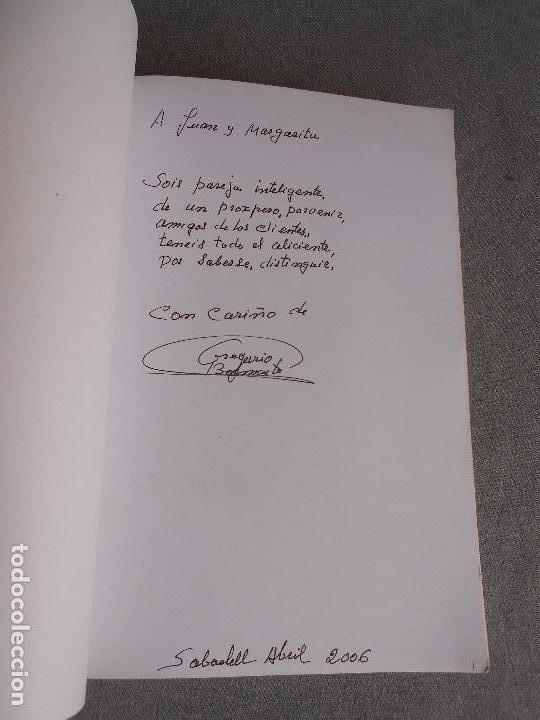 A Juan y Margarita
Sois pareja inteligente,
de un prozpero, porvenir,
amigos de los clientes,
teneis todo el aliciente,
por saberse, distinguir,
Con Cariño de
Gregorio
Sabadell Abril 2006
todocoleccion